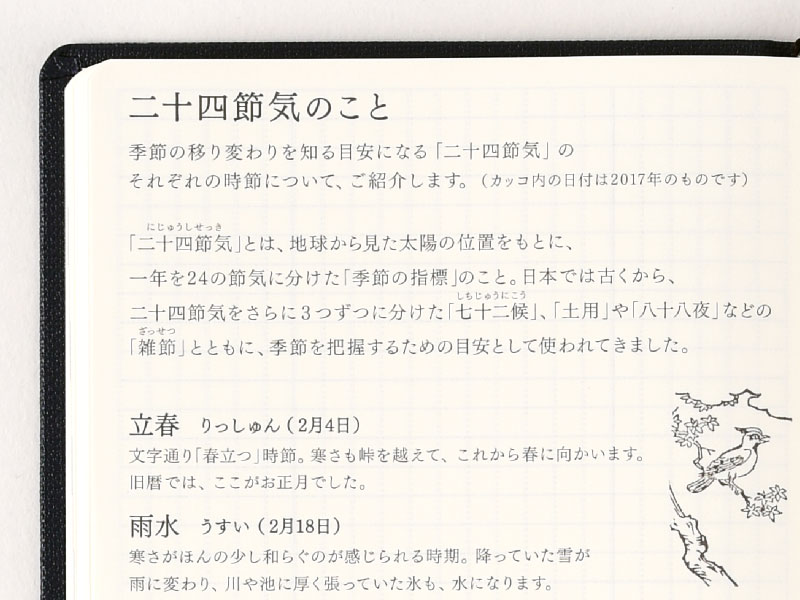 二十四節気のこと
季節の移り変わりを知る目安になる「二十四節気」の
それぞれの時節について、ご紹介します。（カッコ内の日付は2017年のものです）
にじゅうしせっき
「二十四節気」とは、地球から見た太陽の位置をもとに、
一年を24の節気に分けた「季節の指標」のこと。日本では古くから、
しちじゅうにこう
二十四節気をさらに３つずつに分けた「七十二候」、「土用」や「八十八夜」などの
ざっせつ
「雑節」とともに、季節を把握するための目安として使われてきました。
立春 りっしゅん（2月4日）
文字通り「春立つ」時節。寒さも峠を越えて、これから春に向かいます。
旧暦では、ここがお正月でした。
雨水 うすい（2月18日）
寒さがほんの少し和らぐのが感じられる時期。降っていた雪が
雨に変わり、川や池に厚く張っていた氷も、水になります。